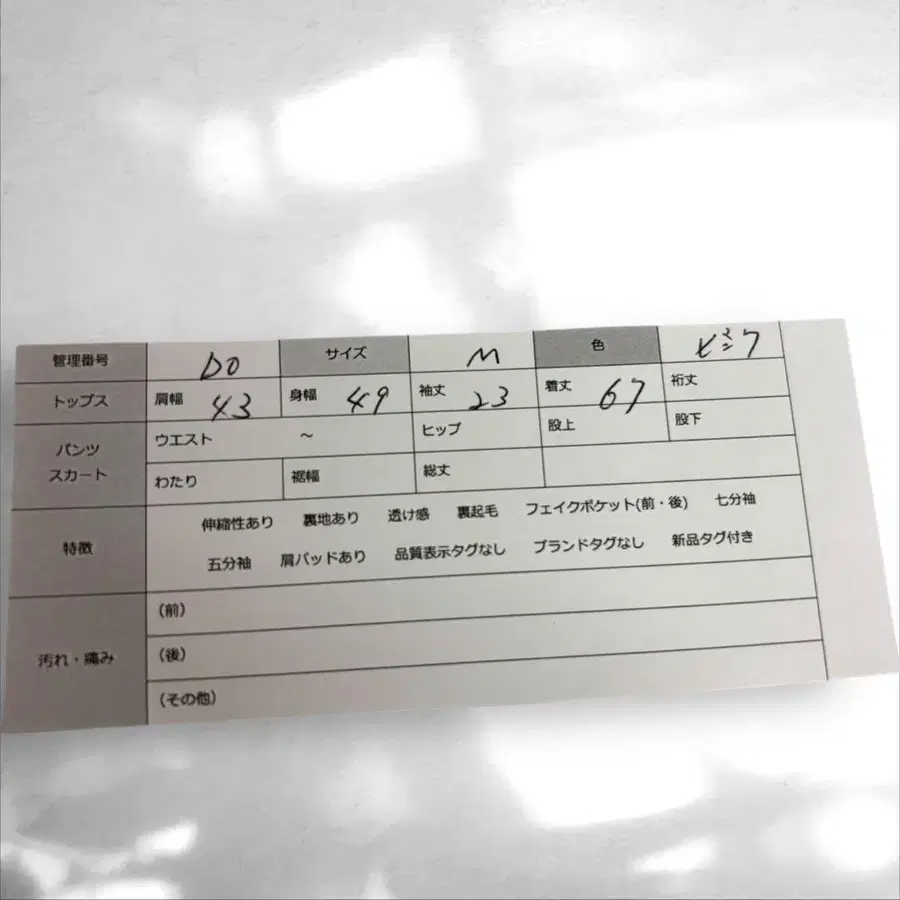 管理番号 DO サイズ M 色 ピンク
トップス 肩幅 43 身幅 49 袖丈 23 着丈 67 裄丈
パンツ スカート ウエスト ～ ヒップ 股上 股下
わたり 裾幅 総丈
特徴 伸縮性あり 裏地あり 透け感 裏起毛 フェイクポケット(前・後) 七分袖
五分袖 肩パッドあり 品質表示タグなし ブランドタグなし 新品タグ付き
汚れ・痛み (前)
(後)
(その他)